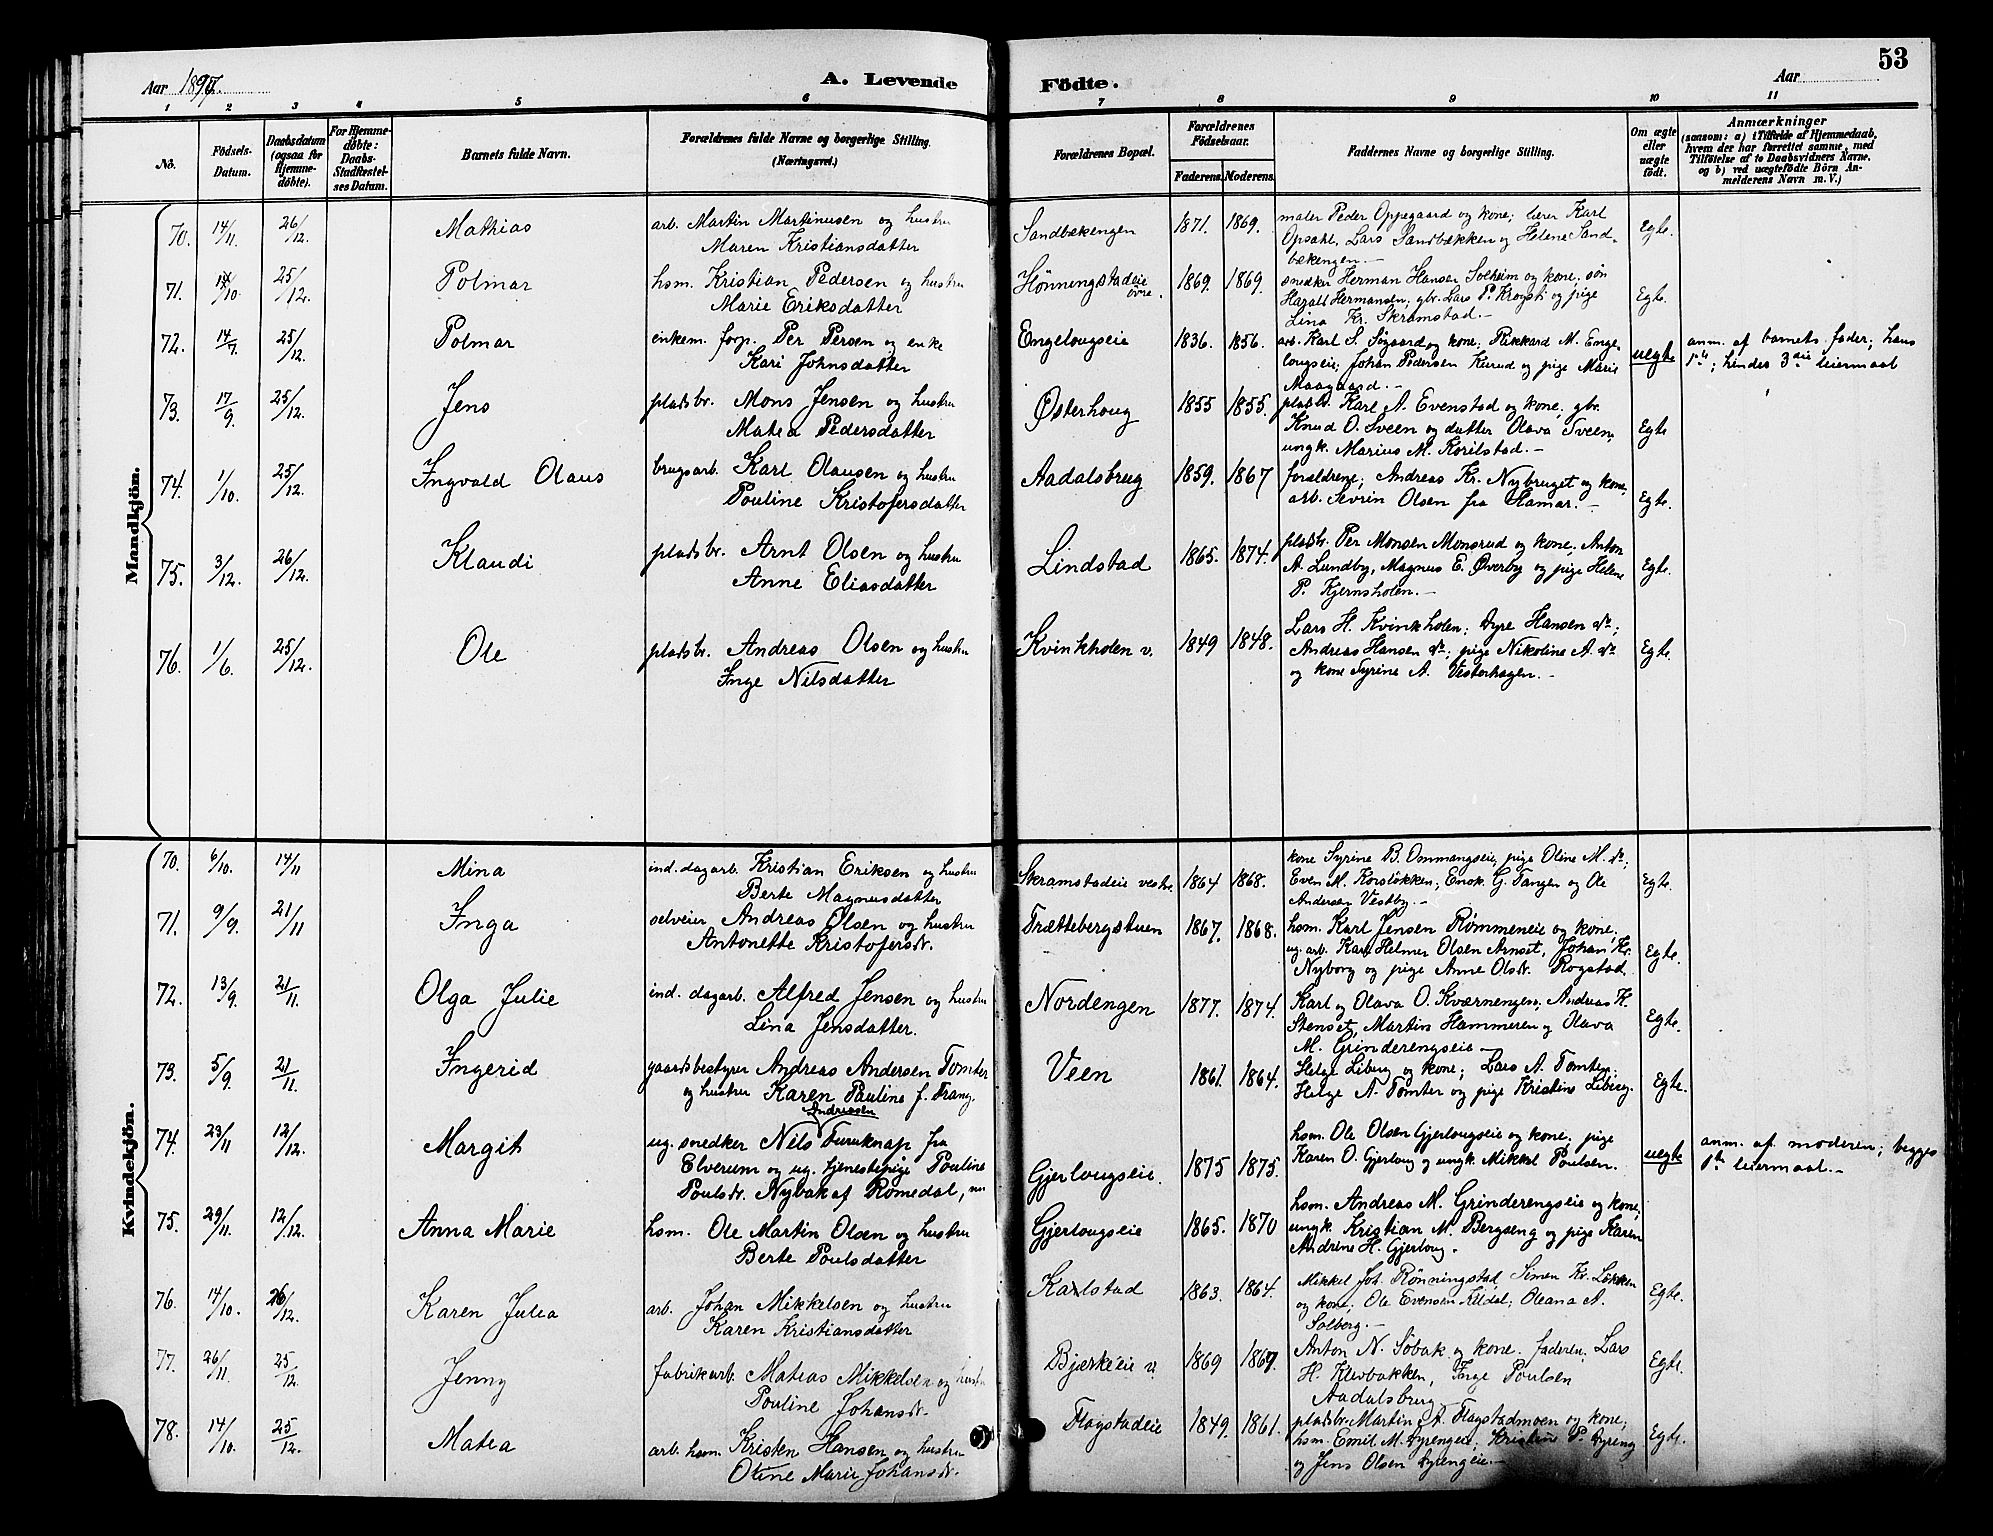 53
Aar 1897.
A. Levende Födte.
Aar
1 2 3 4 5 6 7 8 9 10 11
No.
Födsels-Datum.
Daabsdatum (ogsaa for Hjemmedöbte).
For Hjemmedöbte: Daabs-Stadfæstelses Datum.
Barnets fulde Navn.
Forældrenes fulde Navne og borgerlige Stilling. (Næringsvei.)
Forældrenes Bopæl.
Forældrenes Födselsaar.
Faderens. Moderens.
Faddernes Navne og borgerlige Stilling.
Om ægte eller uægte født.
Anmærkninger
(saasom: a) i Tilfælde af Hjemmedaab, hvem der har forrettet samme, med Tilföielse af to Daabsvidners Navne, og b) ved uægtefödte Börn Anmelderens Navn m. V.)
Mandkjön.
70. 14/11. 26/12. Mathias arb. Martin Martinusen og hustru Sandbækengen 1871. 1869. maler Peder Oppegaard og kone; lærer Karl Egte.
Maren Kristiansdatter Opsahl, Lars Sandbækken og Helene Sand-
bækengen.—
71. 25/12. Polmar hsm. Kristian Pedersen og hustru Hønningstadeie øvre. 1869. 1869. snedker Herman Hansen Solheim og kone; søn Egte.
Marie Eriksdatter Harald Hermansen; gbr. Lars P. Krogsti og pige
Lina Kr. Skramstad.—
72. 14/7. 25/12. Polmar enkem. forp. Per Persen og enke Engelougseie 1836. 1856. arb. Karl S. Søgaard og kone; Rikkard M. Enge- uegte anm. af barnets fader; hans
Kari Johnsdatter lougseie; Johan Pedersen Kurud og pige Marie 1ste; hendes 3die leiermaal
Maagaard.—
73. 17/9. 25/12. Jens pladsbr. Mons Jensen og hustru Østerhoug 1855 1855. pladsbr. Karl A. Evenstad og kone; gbr. Egte
Matea Pedersdatter Knud O. Sveen og datter Olava Sveen,
ungk. Marius M. Korilstad.—
74. 1/10. 25/12. Ingvald Olaus brugsarb. Karl Olausen og hustru Aadalsbrug 1859. 1867 forældrene; Andreas Kr. Nybruget og kone, Egte.
Pouline Kristofersdatter arb. Sevrin Olsen fra Hamar.—
75. 3/12. 26/12. Klaudi pladsbr. Arnt Olsen og hustru Lindstad 1865. 1874. pladsbr. Per Monsen Monsrud og kone; Anton Egte.
Anne Eliasdatter A. Lundby, Magnus E. Øverby og pige Helene
P. Kjernsholen.—
76. 1/6. 25/12. Ole pladsbr. Andreas Olsen og hustru Kvinkholen v. 1849 1848. Lars H. Kvinkholen; Syre Hansen do; Egte.
Inge Nilsdatter Andreas Hansen do; pige Nikoline A. do
og kone Syrine A. Vesterhagen.—
Kvindekjön.
70. 6/10. 14/11 Mina ind. dagarb. Kristian Eriksen og hustru Skramstadeie vestre. 1864 1868. kone Syrine B. Ommangseie, pige Oline M. do; Egte.
Berte Magnusdatter Even M. Korsløkken; Enok G. Tangen og Ole
Andersen Vestby.—
71. 9/9. 21/11 Inga selveier Andreas Olsen og hustru Trættebergstuen 1867. 1868. hsm. Karl Jensen Rømmeneie og kone, Egte.
Antonette Kristofersdr. ug. arb. Karl Helmer Olsen Arnset, Johan Kr.
Nyborg og pige Anne Olsdr. Rogstad
72. 13/9. 21/11. Olga Julie ind. dagarb. Alfred Jensen og hustru Nordengen 1877. 1874. Karl og Olava O. Kværnengen; Andreas K. Egte.
Lina Jensdatter. Stenset, Martin Hammeren og Olava
M. Grinderengseie—
73. 5/9. 21/11. Ingerid gaardsbestyrer Andreas Andersen Tomter Veen 1861. 1864. Helge Liberg og kone; Lars A. Tomter; Egte.
og hustru Karen Pauline f. Frang. Helge A. Tomter og pige Kristine Liberg.
74. 23/11 12/12. Margit ug. snedker Nils Andreasen Furuknap fra Gjerlougseie. 1875 1875. hsm. Ole Olsen Gjerlougseie og kone; pige uegte anm. af moderen; begges
Elverum og ug. tjenestepige Pouline Karen O. Gjerloug og ungk. Mikkel Poulsen. 1ste leiermaal.—
Poulsdr. Nybak af Romedal, nu
75. 29/11. 12/12. Anna Marie hsm. Ole Martin Olsen og hustru Gjerlougseie 1865. 1870 hsm. Andreas M. Grinderengseie og kone,
Berte Poulsdatter ungk. Kristian M. Bergseng og pige Karen Egte.
Andrine H. Gjerloug.
76. 14/10. 26/12. Karen Julia arb. Johan Mikkelsen og hustru Karlstad 1863. 1864. Mikkel Joh. Rønningstad, Simen Kr. Løkken Egte.
Karen Kristiansdatter og kone; Ole Evensen Kildal; Oleana A.
Solberg.—
77. 26/11. 25/12. Jenny fabrikarb. Mateas Mikkelsen og hustru Bjærkeeie v. 1869 1867. Anton N. Søbak og kone. faderen, Lars Egte.
Pouline Johansdr. H. Klevbakken, Inge Poulsen
Aadalsbrug
78. 14/10. 25/12. Matea arb. hsm. Kristen Hansen og hustru Flagstadeie 1849. 1861. pladsbr. Martin A. Flagstadmoen og kone; Egte.
Otine Marie Johansdr. hsm. Emil M. Dyrengeie; Kristine P. Dyreng
og Jens Olsen Dyrengeie.—